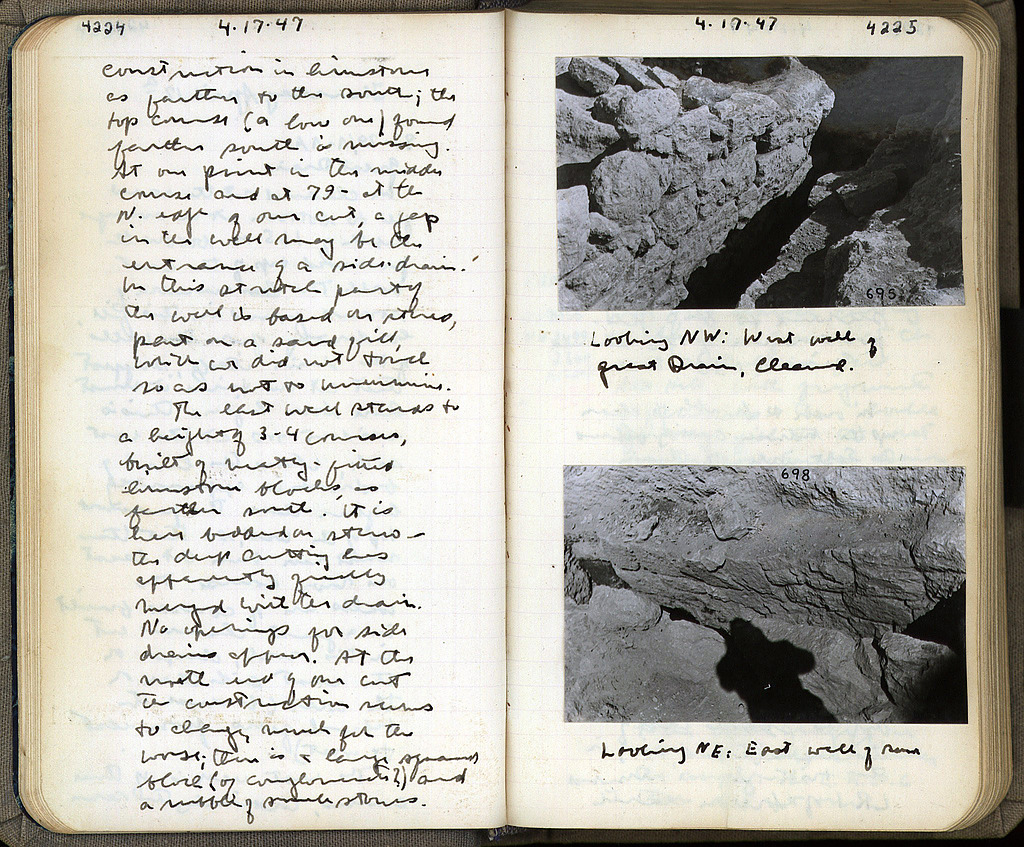 4224
4.17.47
construction in limestone
as farther to the south; the
top course (a low one) found
farther south is missing.
At one point in the middle
course and at 79- at the
N. edge of our cut, a gap
in the wall may be the
entrance of a side-drain.
In this stretch partly
the wall is based on stereo,
part on a sand fill,
which we did not touch
so as not to undermine.
The east wall stands to
a height of 3-4 courses,
built of neatly-fitted
limestone blocks, as
farther south. It is
here bedded on stereo-
the deep cutting has
apparently finally
merged with the drain.
No openings for side
drains appear. At the
north end of our cut
the construction seems
to change much for the
worse; there is a large squared
block (of conglomerate?) and
a rubble of smaller stones.
4.17.47
4225
695
Looking NW: West wall of
great Drain, Cleared.
698
Looking NE: East wall of same